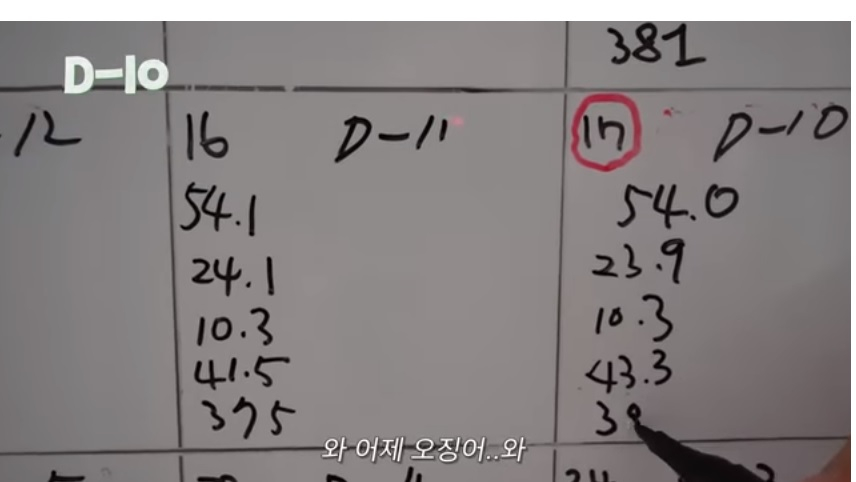 381
D-10
12
16 D-11
17 D-10
54.1
54.0
24.1
23.9
10.3
10.3
41.5
43.3
375
38
와 어제 오징어..와